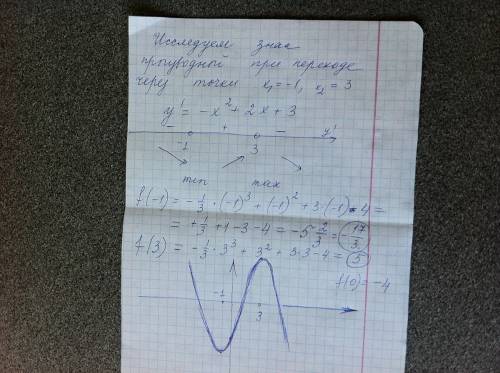 Исследуем знак
производной при переходе
через точки x₁=-1, x₂ = 3
y' = -x² + 2x + 3
- + - y'
-1 3
min max
f(-1) = -1/3 · (-1)³ + (-1)² + 3·(-1) - 4 =
= +1/3 + 1 - 3 - 4 = -5 2/3 = -17/3
f(3) = -1/3 · 3³ + 3² + 3·3 - 4 = 5
f(0) = -4
-1 3